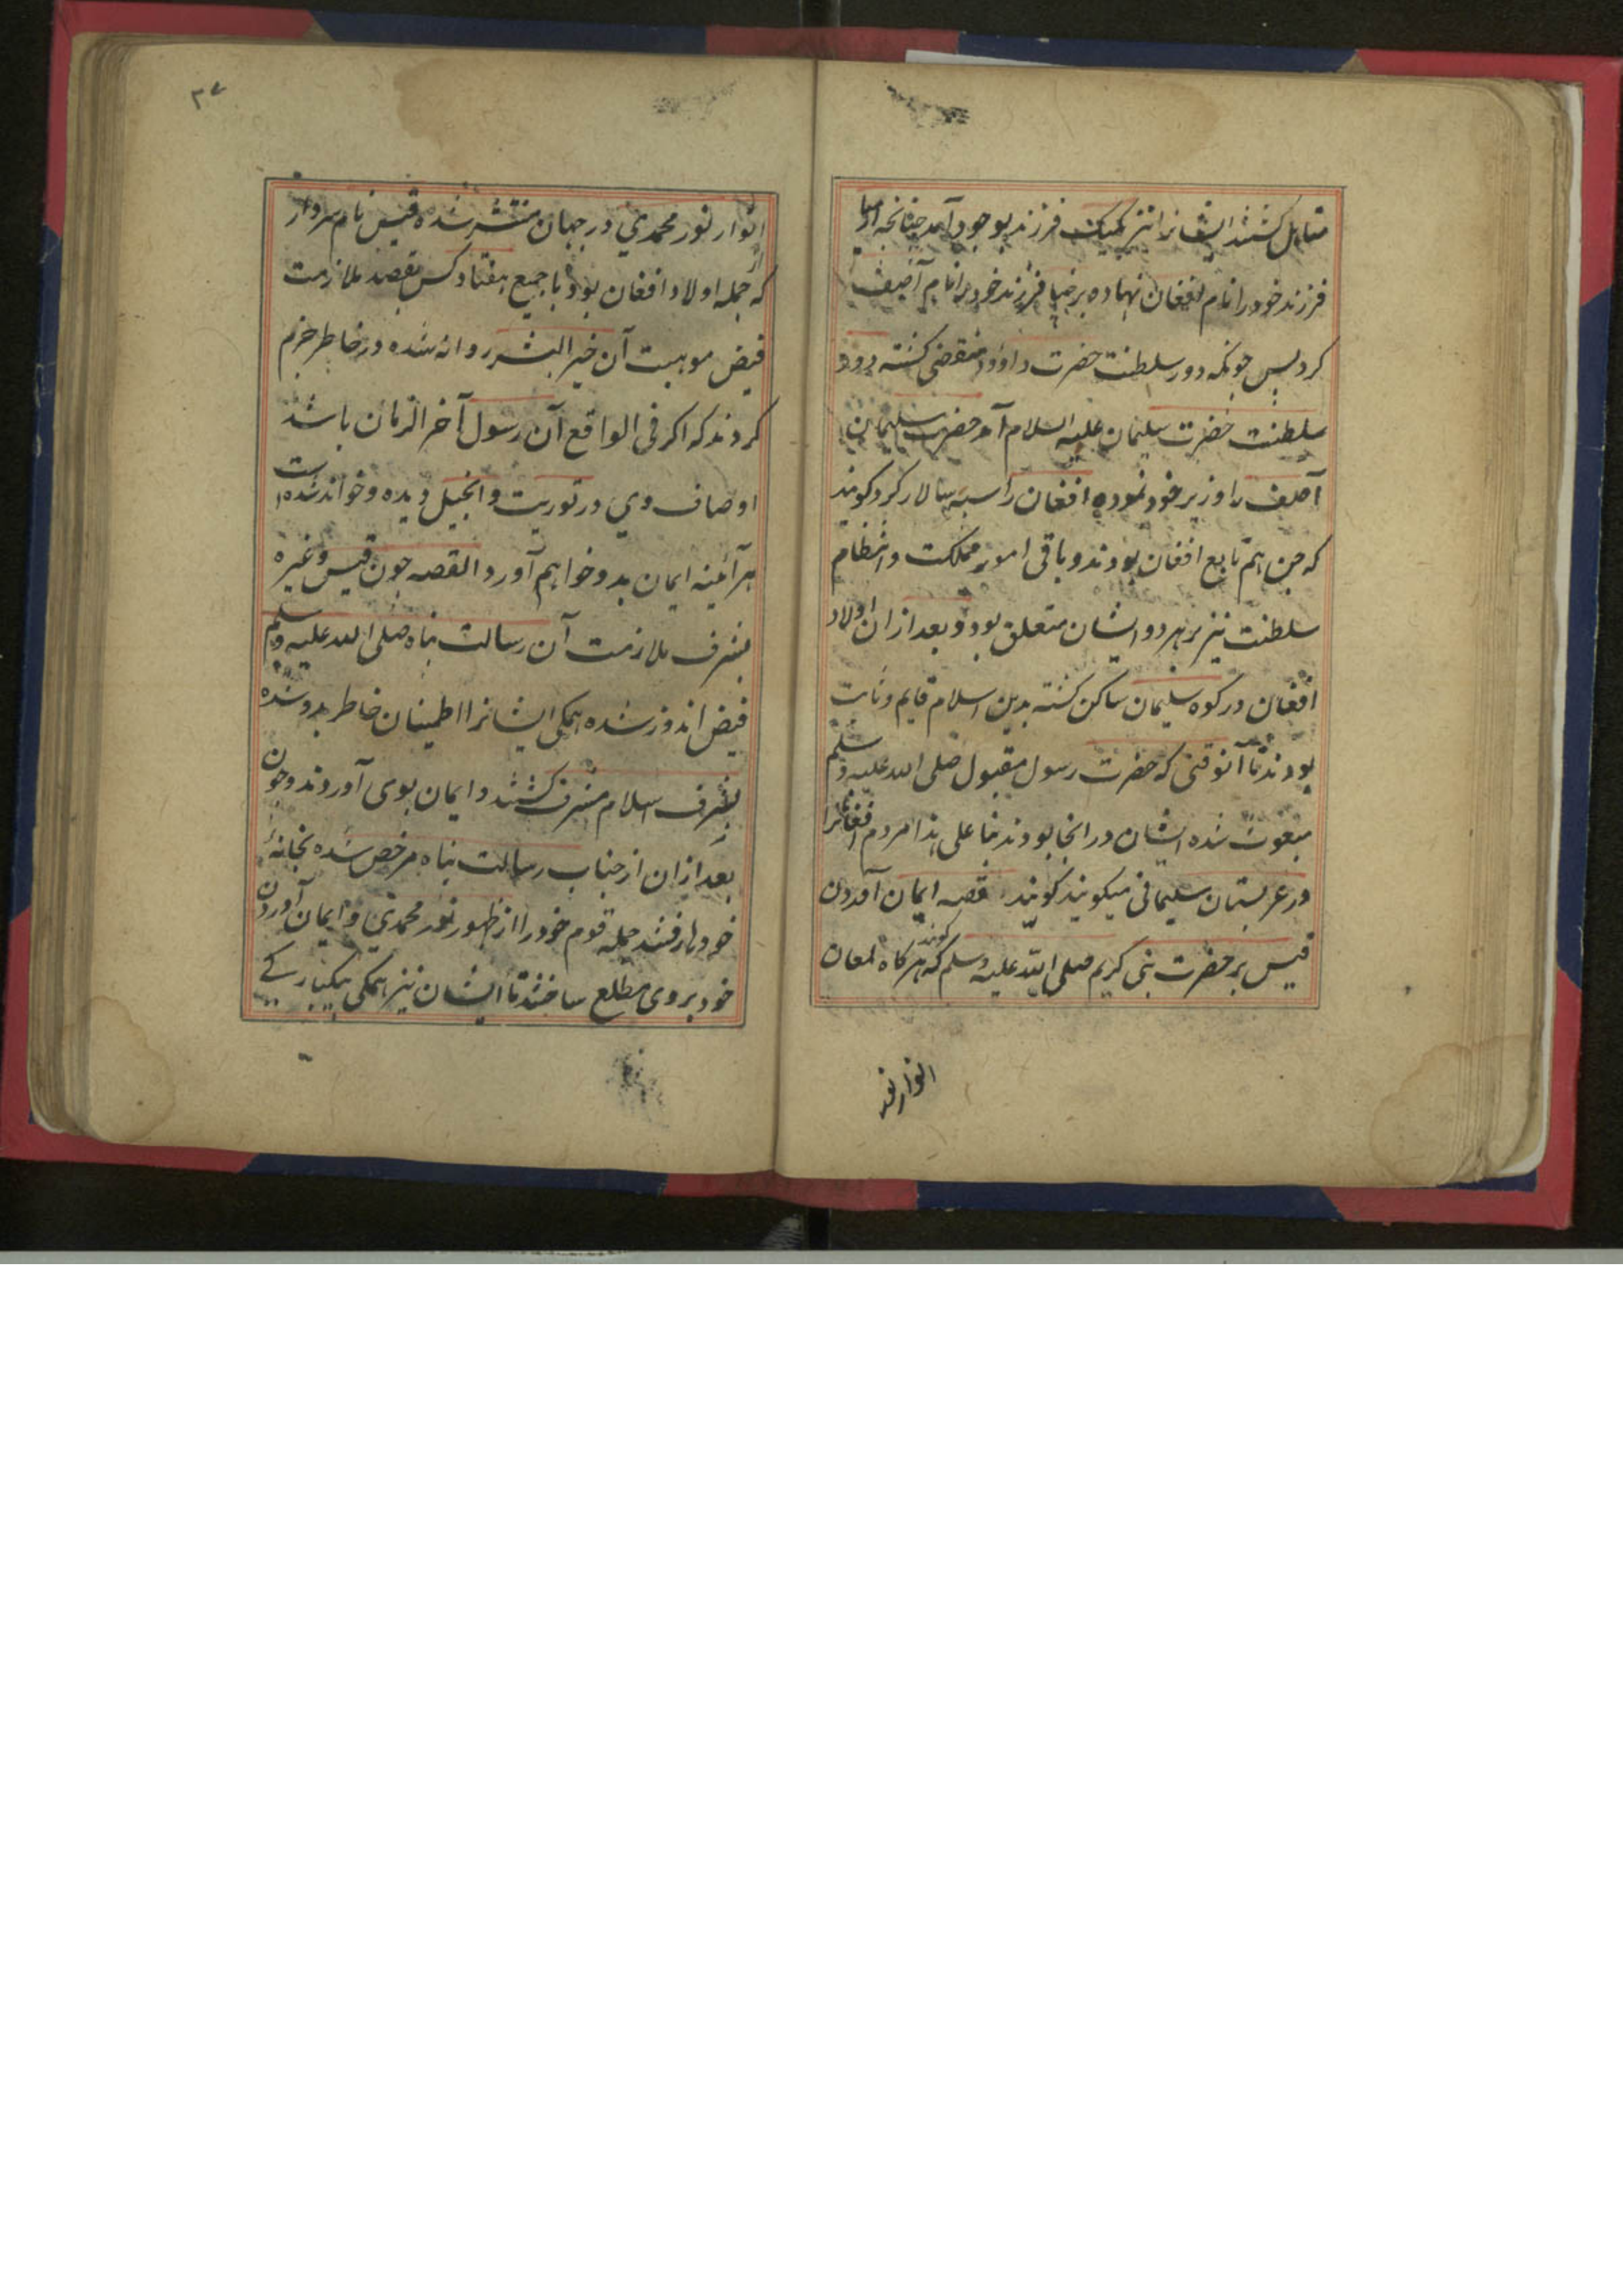 متاهل کشتند ایشانرا نیز یکیک فرزند بوجود آمد چنانچه ارمیا
فرزند خود را نام افغان نهاده برخیا فرزند خود را نام آصف
کرد پس چونکه دور سلطنت حضرت داؤد منقضی کشته دور
سلطنت حضرت سلیمان علیه السلام آمد حضرت سلیمان
آصف را وزیر خود نموده افغان را سپه سالار کرد کویند
که جن هم تابع افغان بودند و باقی امور مملکت و انتظام
سلطنت نیز بر هر دو ایشان متعلق بود و بعد ازان اولاد
افغان در کوه سلیمان ساکن کشته بدین اسلام قایم و ثابت
بودند تا آنوقتی که حضرت رسول مقبول صلی الله علیه وسلم
مبعوث شده ایشان در انجا بودند بنا علی هذا مردم افغانرا
در عربستان سلیمانی میکویند کویند قصه ایمان آوردن
قیس بر حضرت نبی کریم صلی الله علیه وسلم کویند که هرکاه لمعان
انوار نور
٣٧
انوار نور محمدی در جهان منتشر شده قیس نام سردار
که از جمله اولاد افغان بود با جمیع هفتاد کس بقصد ملازمت
فیض موهبت آن خیر البشر روانه شده در خاطر جزم
کردند که اکر فی الواقع آن رسول آخر الزمان باشد
اوصاف وی در توریت و انجیل دیده و خوانده شده است
هر آئینه ایمان بدو خواهم آورد القصه چون قیس وغیره
بشرف ملازمت آن رسالت پناه صلی الله علیه وسلم
فیض اندوز شده همکی ایشانرا اطمینان خاطر بدو شده
بشرف اسلام مشرف کشتند و ایمان بوی آوردند و چون
بعد ازان از جناب رسالت پناه مرخص شده بخانهٔ
خودها رفتند جمله قوم خود را از ظهور نور محمدی و ایمان آوردن
خود بروی مطلع ساختند تا ایشان نیز همکی بیکبارکی